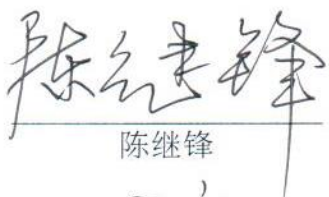 陈继锋
陈继锋